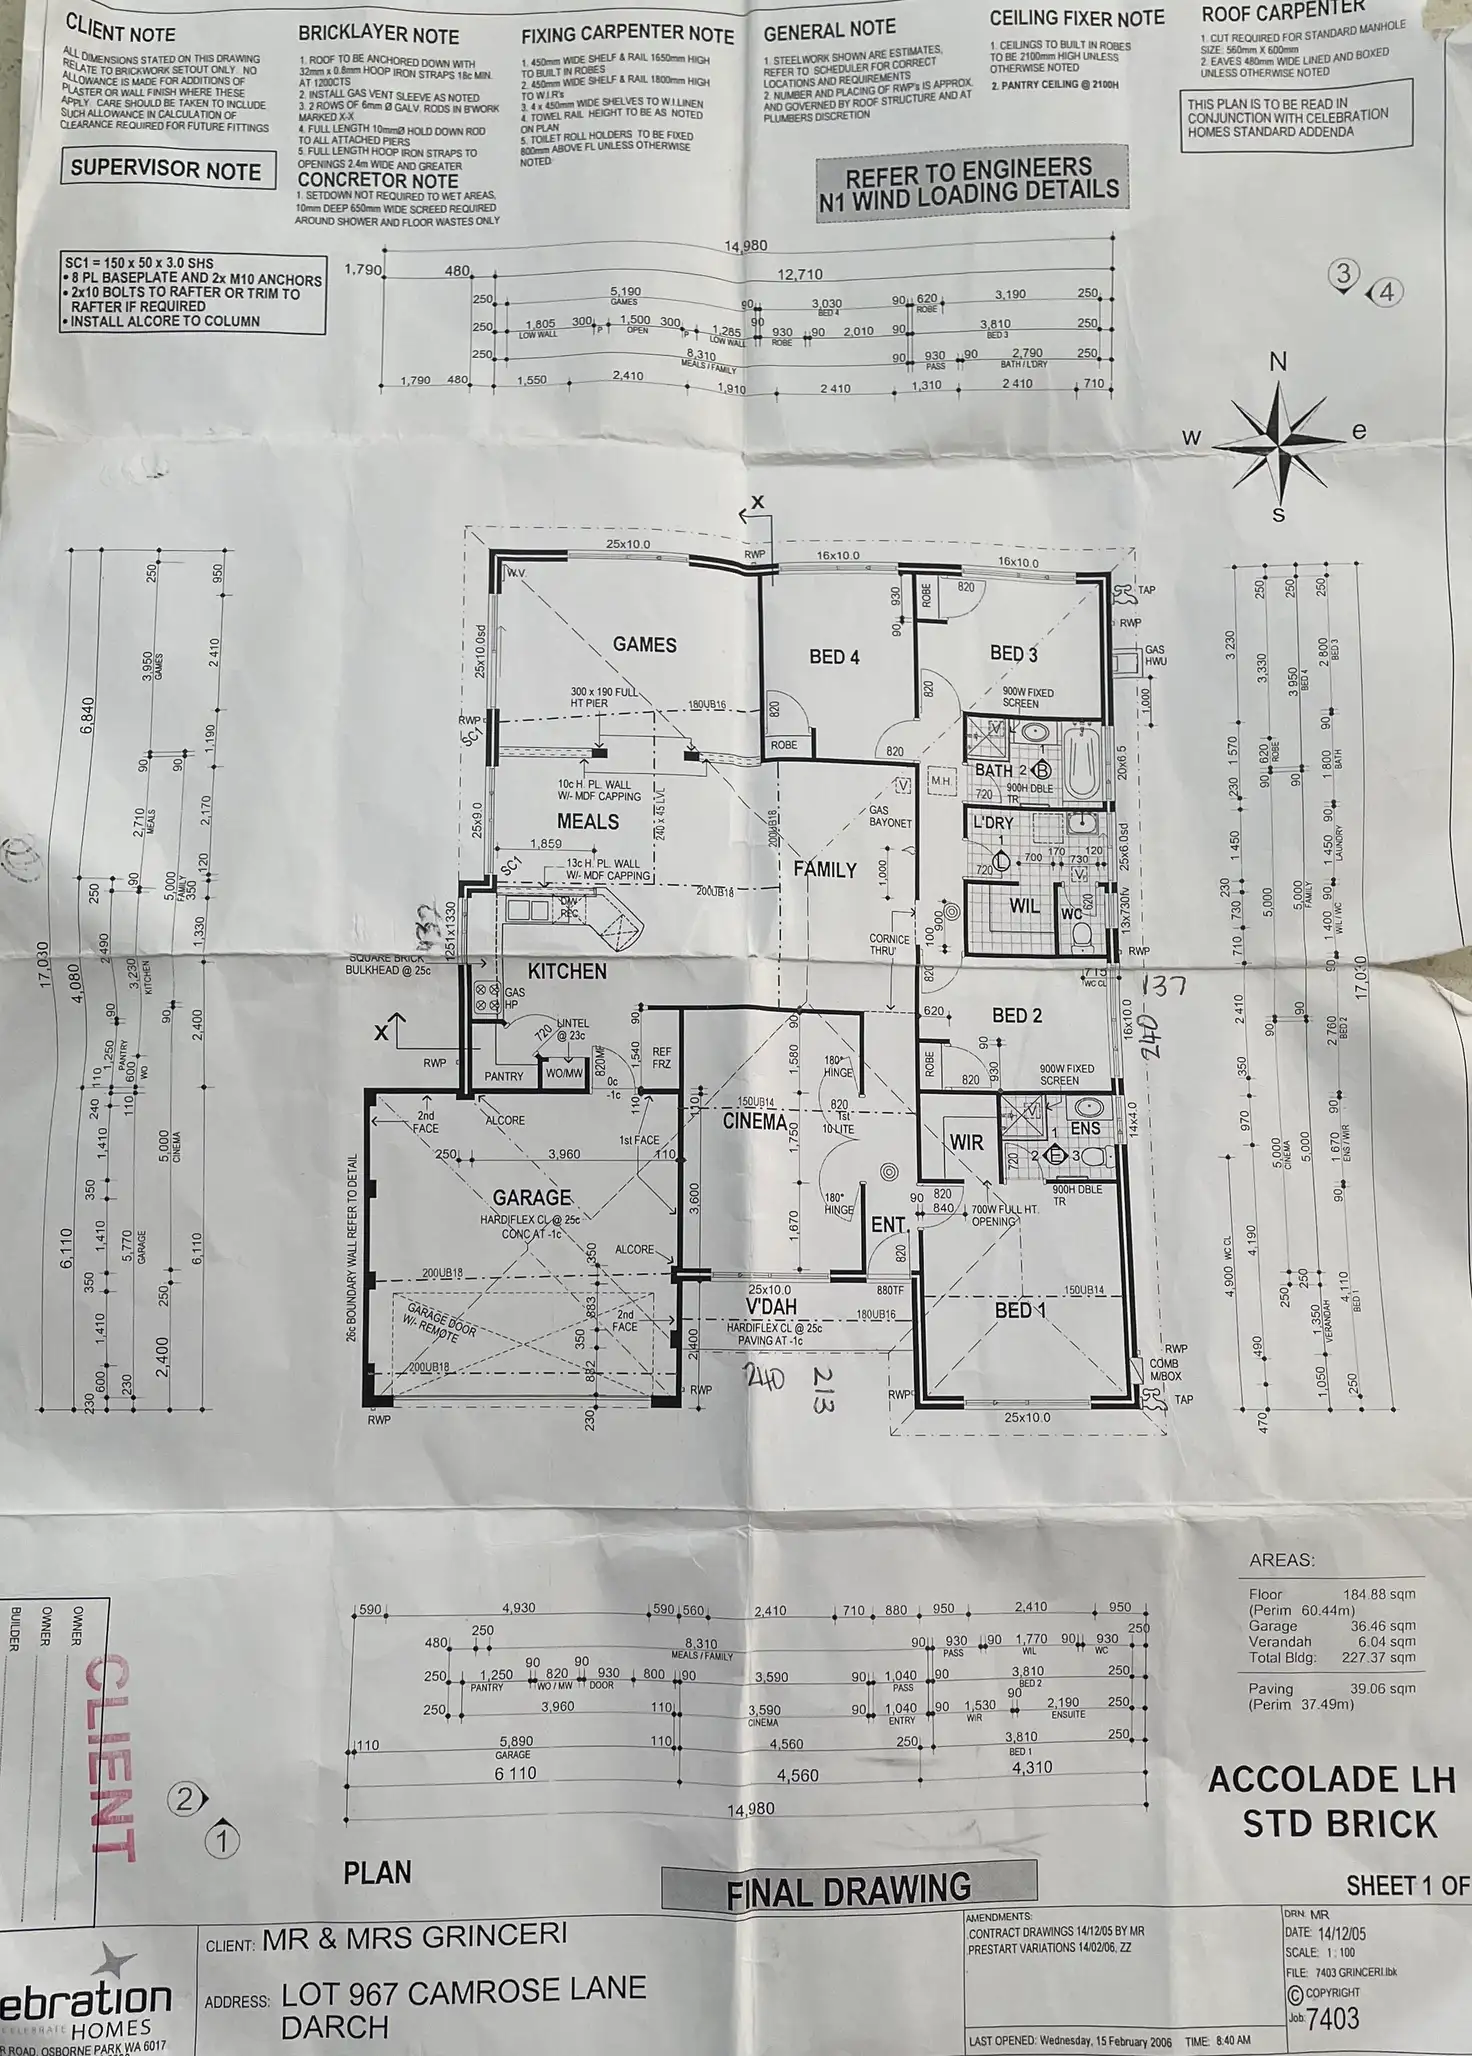 CLIENT NOTE
ALL DIMENSIONS STATED ON THIS DRAWING
RELATE TO BRICKWORK SETOUT ONLY. NO
ALLOWANCE IS MADE FOR ADDITIONS OF
PLASTER OR WALL FINISH WHERE THESE
APPLY. CARE SHOULD BE TAKEN TO INCLUDE
SUCH ALLOWANCE IN CALCULATION OF
CLEARANCE REQUIRED FOR FUTURE FITTINGS
SUPERVISOR NOTE
BRICKLAYER NOTE
1. ROOF TO BE ANCHORED DOWN WITH
32mm x 0.8mm HOOP IRON STRAPS 18c MIN.
AT 1200CTS
2. INSTALL GAS VENT SLEEVE AS NOTED
3. 2 ROWS OF 6mm Ø GALV. RODS IN B'WORK
MARKED X-X
4. FULL LENGTH 10mmØ HOLD DOWN ROD
TO ALL ATTACHED PIERS
5. FULL LENGTH HOOP IRON STRAPS TO
OPENINGS 2.4m WIDE AND GREATER
CONCRETOR NOTE
1. SETDOWN NOT REQUIRED TO WET AREAS,
10mm DEEP 650mm WIDE SCREED REQUIRED
AROUND SHOWER AND FLOOR WASTES ONLY
FIXING CARPENTER NOTE
1. 450mm WIDE SHELF & RAIL 1650mm HIGH
TO BUILT IN ROBES
2. 450mm WIDE SHELF & RAIL 1800mm HIGH
TO W.I.R's
3. 4 x 450mm WIDE SHELVES TO W.I.LINEN
4. TOWEL RAIL HEIGHT TO BE AS NOTED
ON PLAN
5. TOILET ROLL HOLDERS TO BE FIXED
600mm ABOVE FL UNLESS OTHERWISE
NOTED
GENERAL NOTE
1. STEELWORK SHOWN ARE ESTIMATES,
REFER TO SCHEDULER FOR CORRECT
LOCATIONS AND REQUIREMENTS
2. NUMBER AND PLACING OF RWP's IS APPROX.
AND GOVERNED BY ROOF STRUCTURE AND AT
PLUMBERS DISCRETION
REFER TO ENGINEERS
N1 WIND LOADING DETAILS
CEILING FIXER NOTE
1. CEILINGS TO BUILT IN ROBES
TO BE 2100mm HIGH UNLESS
OTHERWISE NOTED
2. PANTRY CEILING @ 2100H
ROOF CARPENTER
1. CUT REQUIRED FOR STANDARD MANHOLE
SIZE: 560mm X 600mm
2. EAVES 480mm WIDE LINED AND BOXED
UNLESS OTHERWISE NOTED
THIS PLAN IS TO BE READ IN
CONJUNCTION WITH CELEBRATION
HOMES STANDARD ADDENDA
SC1 = 150 x 50 x 3.0 SHS
• 8 PL BASEPLATE AND 2x M10 ANCHORS
• 2x10 BOLTS TO RAFTER OR TRIM TO
RAFTER IF REQUIRED
• INSTALL ALCORE TO COLUMN
14,980
1,790 480 12,710
250 5,190 90 3,030 90 620 3,190 250
GAMES BED 4 ROBE
250 1,805 300 1,500 300 1,285 90 930 90 2,010 90 3,810 250
LOW WALL P OPEN P LOW WALL ROBE BED 3
250 8,310 90 930 90 2,790 250
MEALS / FAMILY PASS BATH / L'DRY
1,790 480 1,550 2,410 1,910 2 410 1,310 2 410 710
3 4
N
W e
S
X
25x10.0 RWP 16x10.0 16x10.0
W.V.
820 ROBE 930 90
TAP
RWP
GAS
HWU
1,000
GAMES
BED 4
BED 3
25x10.0sd
300 x 190 FULL
HT PIER
180UB16
900W FIXED
SCREEN
820 820 820
ROBE
RWP
SC1
10c H. PL. WALL
W/- MDF CAPPING
240 x 45 LVL
200UB18
V
M.H.
BATH 2 B 1
900H DBLE
TR
720
20x6.5
GAS
BAYONET
MEALS
25x9.0
1,859
13c H. PL. WALL
W/- MDF CAPPING
SC1
200UB18
FAMILY
1,000
L'DRY
1 L
720
700 170 730 120
V
25x6.0sd
WIL
WC
620
13x730fv
RWP
900
100
CORNICE
THRU'
820
1251x1330
SQUARE BRICK
BULKHEAD @ 25c
D/W
REC
KITCHEN
GAS
HP
715
WC CL
137
240
16x10.0
X
RWP
720
LINTEL
@ 23c
PANTRY
WO/MW
820MF
0c
-1c
90
1,540
110
REF
FRZ
90
1,580
620
BED 2
90
930
ROBE
820
900W FIXED
SCREEN
14x4.0
2nd
FACE
ALCORE
1st FACE
250 3,960 110
110
150UB14
CINEMA
1,750
180°
HINGE
820
1st
10 LITE
180°
HINGE
WIR
V
ENS
1
2 E 3
720
900H DBLE
TR
GARAGE
HARDIFLEX CL @ 25c
CONC AT -1c
3,600
1,670
ENT.
90 820
840
700W FULL HT.
OPENING
820
26c BOUNDARY WALL REFER TO DETAIL
ALCORE
200UB18
GARAGE DOOR
W/- REMOTE
350
883
350
882
230
2nd
FACE
25x10.0
V'DAH
HARDIFLEX CL @ 25c
PAVING AT -1c
880TF
180UB16
2,400
BED 1
150UB14
200UB18
RWP
RWP
240
213
RWP
25x10.0
RWP
COMB
M/BOX
TAP
17,030
6,840
4,080
6,110
250
2,490
90
1,250
PANTRY
110
240
1,410
350
1,410
350
1,410
600
230
250
3,950
GAMES
90
2,710
MEALS
90
3,230
KITCHEN
600
WO
110
5,770
GARAGE
230
90
5,000
FAMILY
90
5,000
CINEMA
250
2,400
950
2 410
1,190
2,170
120
350
1,330
2,400
6,110
3 230
1 570
230
1 450
230
730
710
2 410
350
970
4,900 WC CL
4,190
490
470
250
3,330
620
ROBE
90
5,000
90
5,000
CINEMA
250
250
3 950
BED 4
90
5,000
FAMILY
5,000
250
250
2 800
BED 3
90
1 800
BATH
90
1 450
LAUNDRY
90
1 400
WIL / WC
90
2 760
BED 2
90
1 670
ENS / WIR
90
4,110
BED 1
1,350
VERANDAH
1,050
250
17,030
590 4,930 590 560 2,410 710 880 950 2,410 950
480 250 8,310 90 930 90 1,770 90 930 250
MEALS / FAMILY PASS WIL WC
250 1,250 90 820 90 930 800 90 3,590 90 1,040 90 3,810 250
PANTRY WO / MW DOOR PASS BED 2
250 3,960 110 3,590 90 1,040 90 1,530 90 2,190 250
CINEMA ENTRY WIR ENSUITE
110 5,890 110 4,560 250 3,810 250
GARAGE BED 1
6 110 4,560 4,310
14,980
AREAS:
Floor 184.88 sqm
(Perim 60.44m)
Garage 36.46 sqm
Verandah 6.04 sqm
Total Bldg: 227.37 sqm
Paving 39.06 sqm
(Perim 37.49m)
OWNER
OWNER
BUILDER
CLIENT
2
1
PLAN
FINAL DRAWING
ACCOLADE LH
STD BRICK
SHEET 1 OF
ebration
CELEBRATE HOMES
R ROAD, OSBORNE PARK WA 6017
CLIENT: MR & MRS GRINCERI
ADDRESS: LOT 967 CAMROSE LANE
DARCH
AMENDMENTS:
.CONTRACT DRAWINGS 14/12/05 BY MR
.PRESTART VARIATIONS 14/02/06, ZZ
LAST OPENED: Wednesday, 15 February 2006 TIME: 8:40 AM
DRN: MR
DATE: 14/12/05
SCALE: 1 : 100
FILE: 7403 GRINCERI.lbk
© COPYRIGHT
Job: 7403